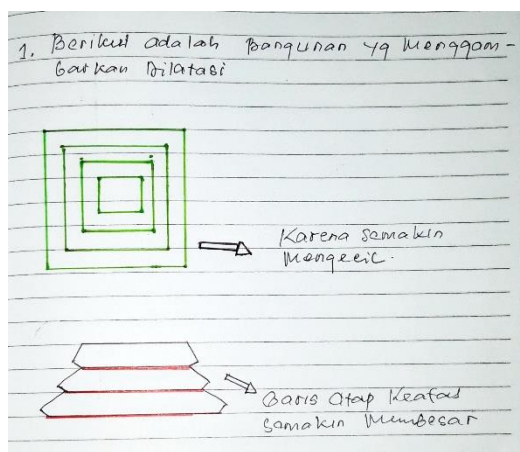 1. Berikut adalah Bangunan yg Menggam-
barkan Dilatasi
Karena semakin
Mengecil.
Garis Atap Keatas
Semakin Membesar